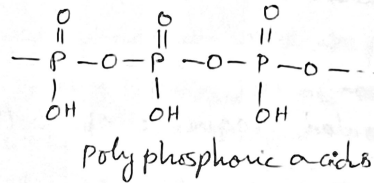 O O O
|| || ||
— P — O — P — O — P — O — - -
| | |
OH OH OH
Polyphosphoric acids